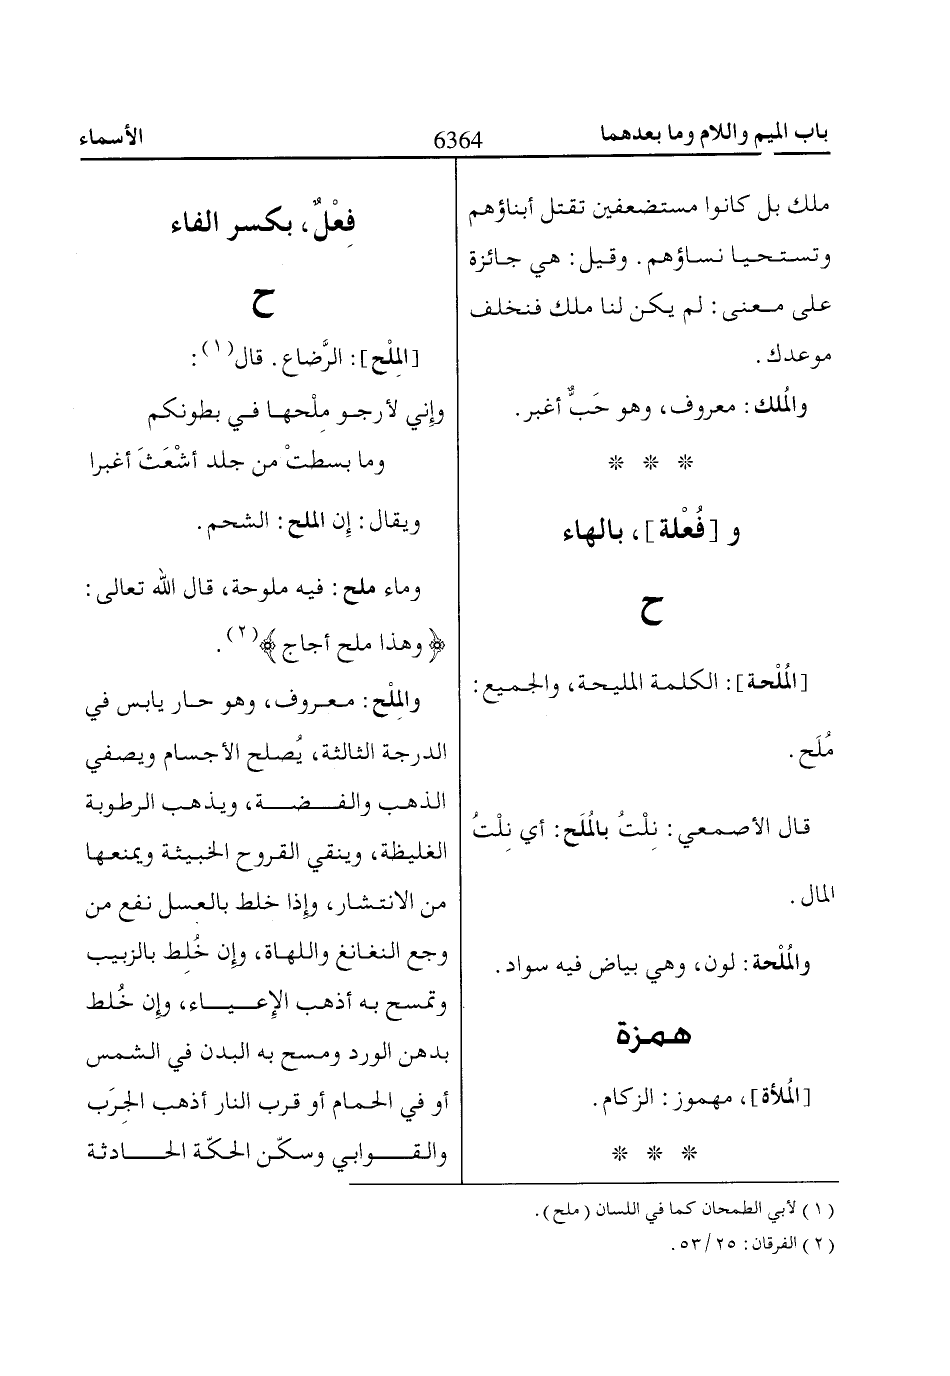 باب الميم واللام وما بعدهما
6364
الأسماء
ملك بل كانوا مستضعفين تقتل أبناؤهم
وتستحيا نساؤهم. وقيل: هي جائزة
على معنى: لم يكن لنا ملك فنخلف
موعدك.
والمُلك: معروف، وهو حَبٌّ أغبر.
❊ ❊ ❊
و [فُعْلة]، بالهاء
ح
[المُلْحة]: الكلمة المليحة، والجميع:
مُلَح.
قال الأصمعي: نِلْتُ بالمُلَح: أي نِلْتُ
المال.
والمُلْحة: لون، وهي بياض فيه سواد.
همزة
[المُلأة]، مهموز: الزكام.
❊ ❊ ❊
فِعْلٌ، بكسر الفاء
ح
[المِلْح]: الرَّضاع. قال(١):
وإني لأرجو مِلْحها في بطونكم
وما بسطتْ من جلد أشْعَثَ أغبرا
ويقال: إن الملح: الشحم.
وماء ملح: فيه ملوحة، قال الله تعالى:
﴿وهذا ملح أجاج﴾(٢).
والمِلْح: معروف، وهو حار يابس في
الدرجة الثالثة، يُصلح الأجسام ويصفي
الذهب والفضة، ويذهب الرطوبة
الغليظة، وينقي القروح الخبيثة ويمنعها
من الانتشار، وإذا خلط بالعسل نفع من
وجع النغانغ واللهاة، وإن خُلط بالزبيب
وتمسح به أذهب الإعياء، وإن خُلط
بدهن الورد ومسح به البدن في الشمس
أو في الحمام أو قرب النار أذهب الجرَب
والقوابي وسكّن الحكّة الحادثة
(١) لأبي الطمحان كما في اللسان (ملح).
(٢) الفرقان: ٢٥/٥٣.